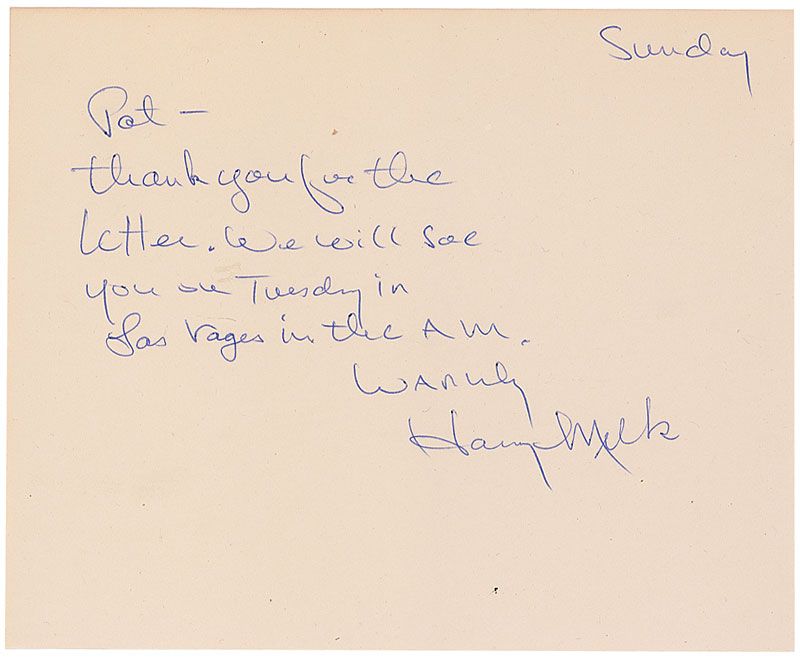 Sunday
Pat —
thank you for the
letter. We will see
you on Tuesday in
Las Vages in the AM.
Warmly
Harvey Milk